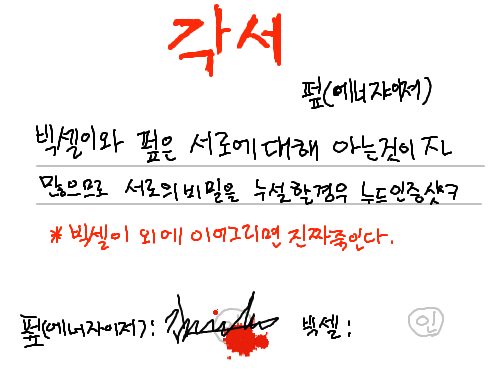 각서
펖(에너쟈이져)
빅셀이와 펖은 서로에 대해 아는것이 자
많으므로 서로의 비밀을 누설할경우 누드인증샷ㅋ
* 빅셀이 외에 이어그리면 진짜죽인다.
펖(에너자이저): 빅셀: 인